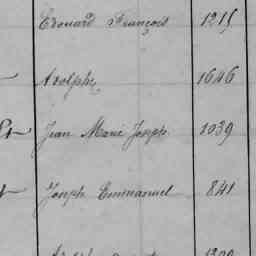 Edouard François 1215
Adolphe 1646
Jean Marie Joseph 1039
Joseph Emmanuel 841